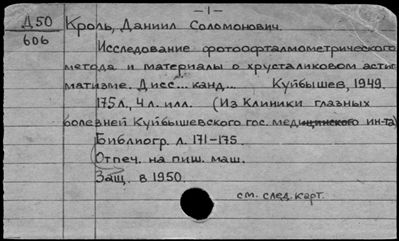 – 1 –
Д50 Кроль, Даниил Соломонович.
606
Исследование фотоофталмометрического
метода и материалы о хрусталиковом астиг
матизме. Дисс... канд... Куйбышев, 1949.
175л., 4л. илл. (Из Клиники глазных
болезней Куйбышевского гос. медицинского ин-та)
Библиогр. л. 171-175.
Отпеч. на пиш. маш.
Защ. в 1950.
см. след. карт.